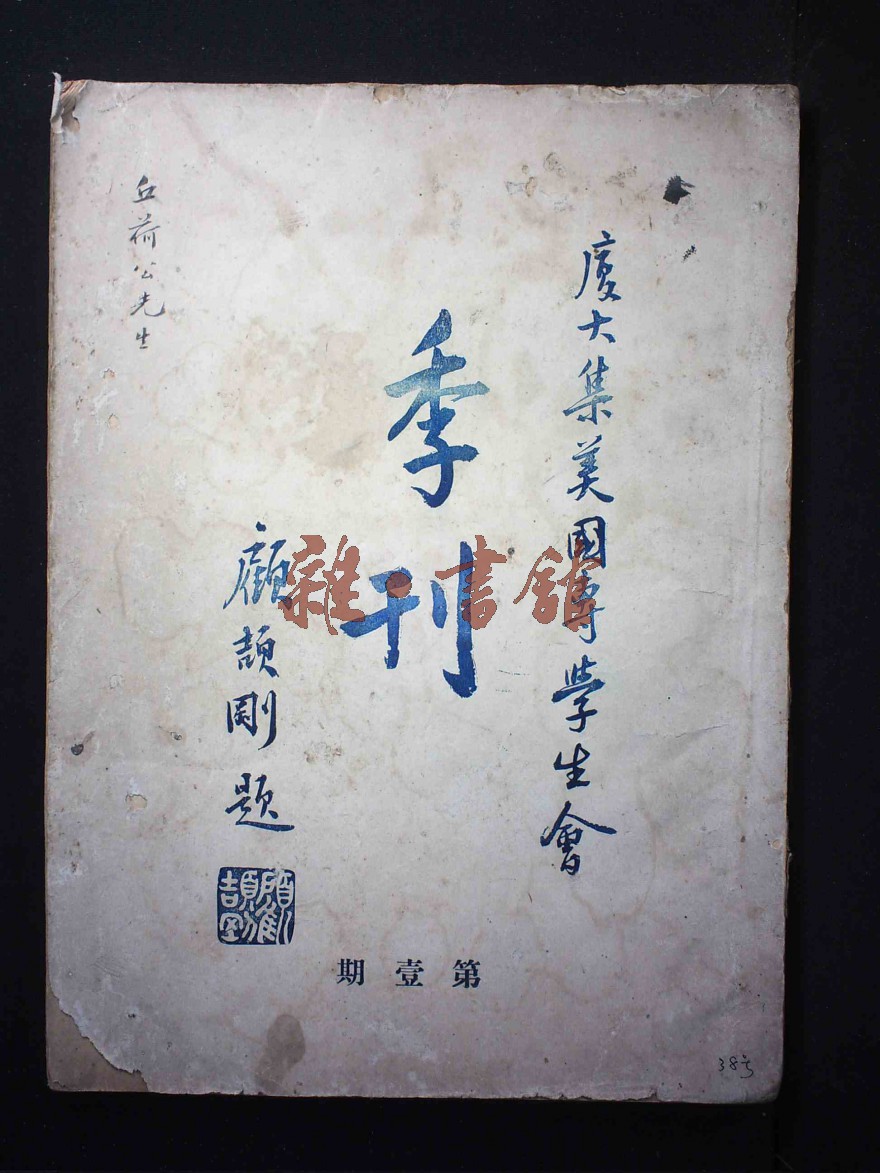 廈大集美國專學生會
季刊
顧頡剛題
顧頡剛
第壹期
丘荷公先生
38号
雜·書舘